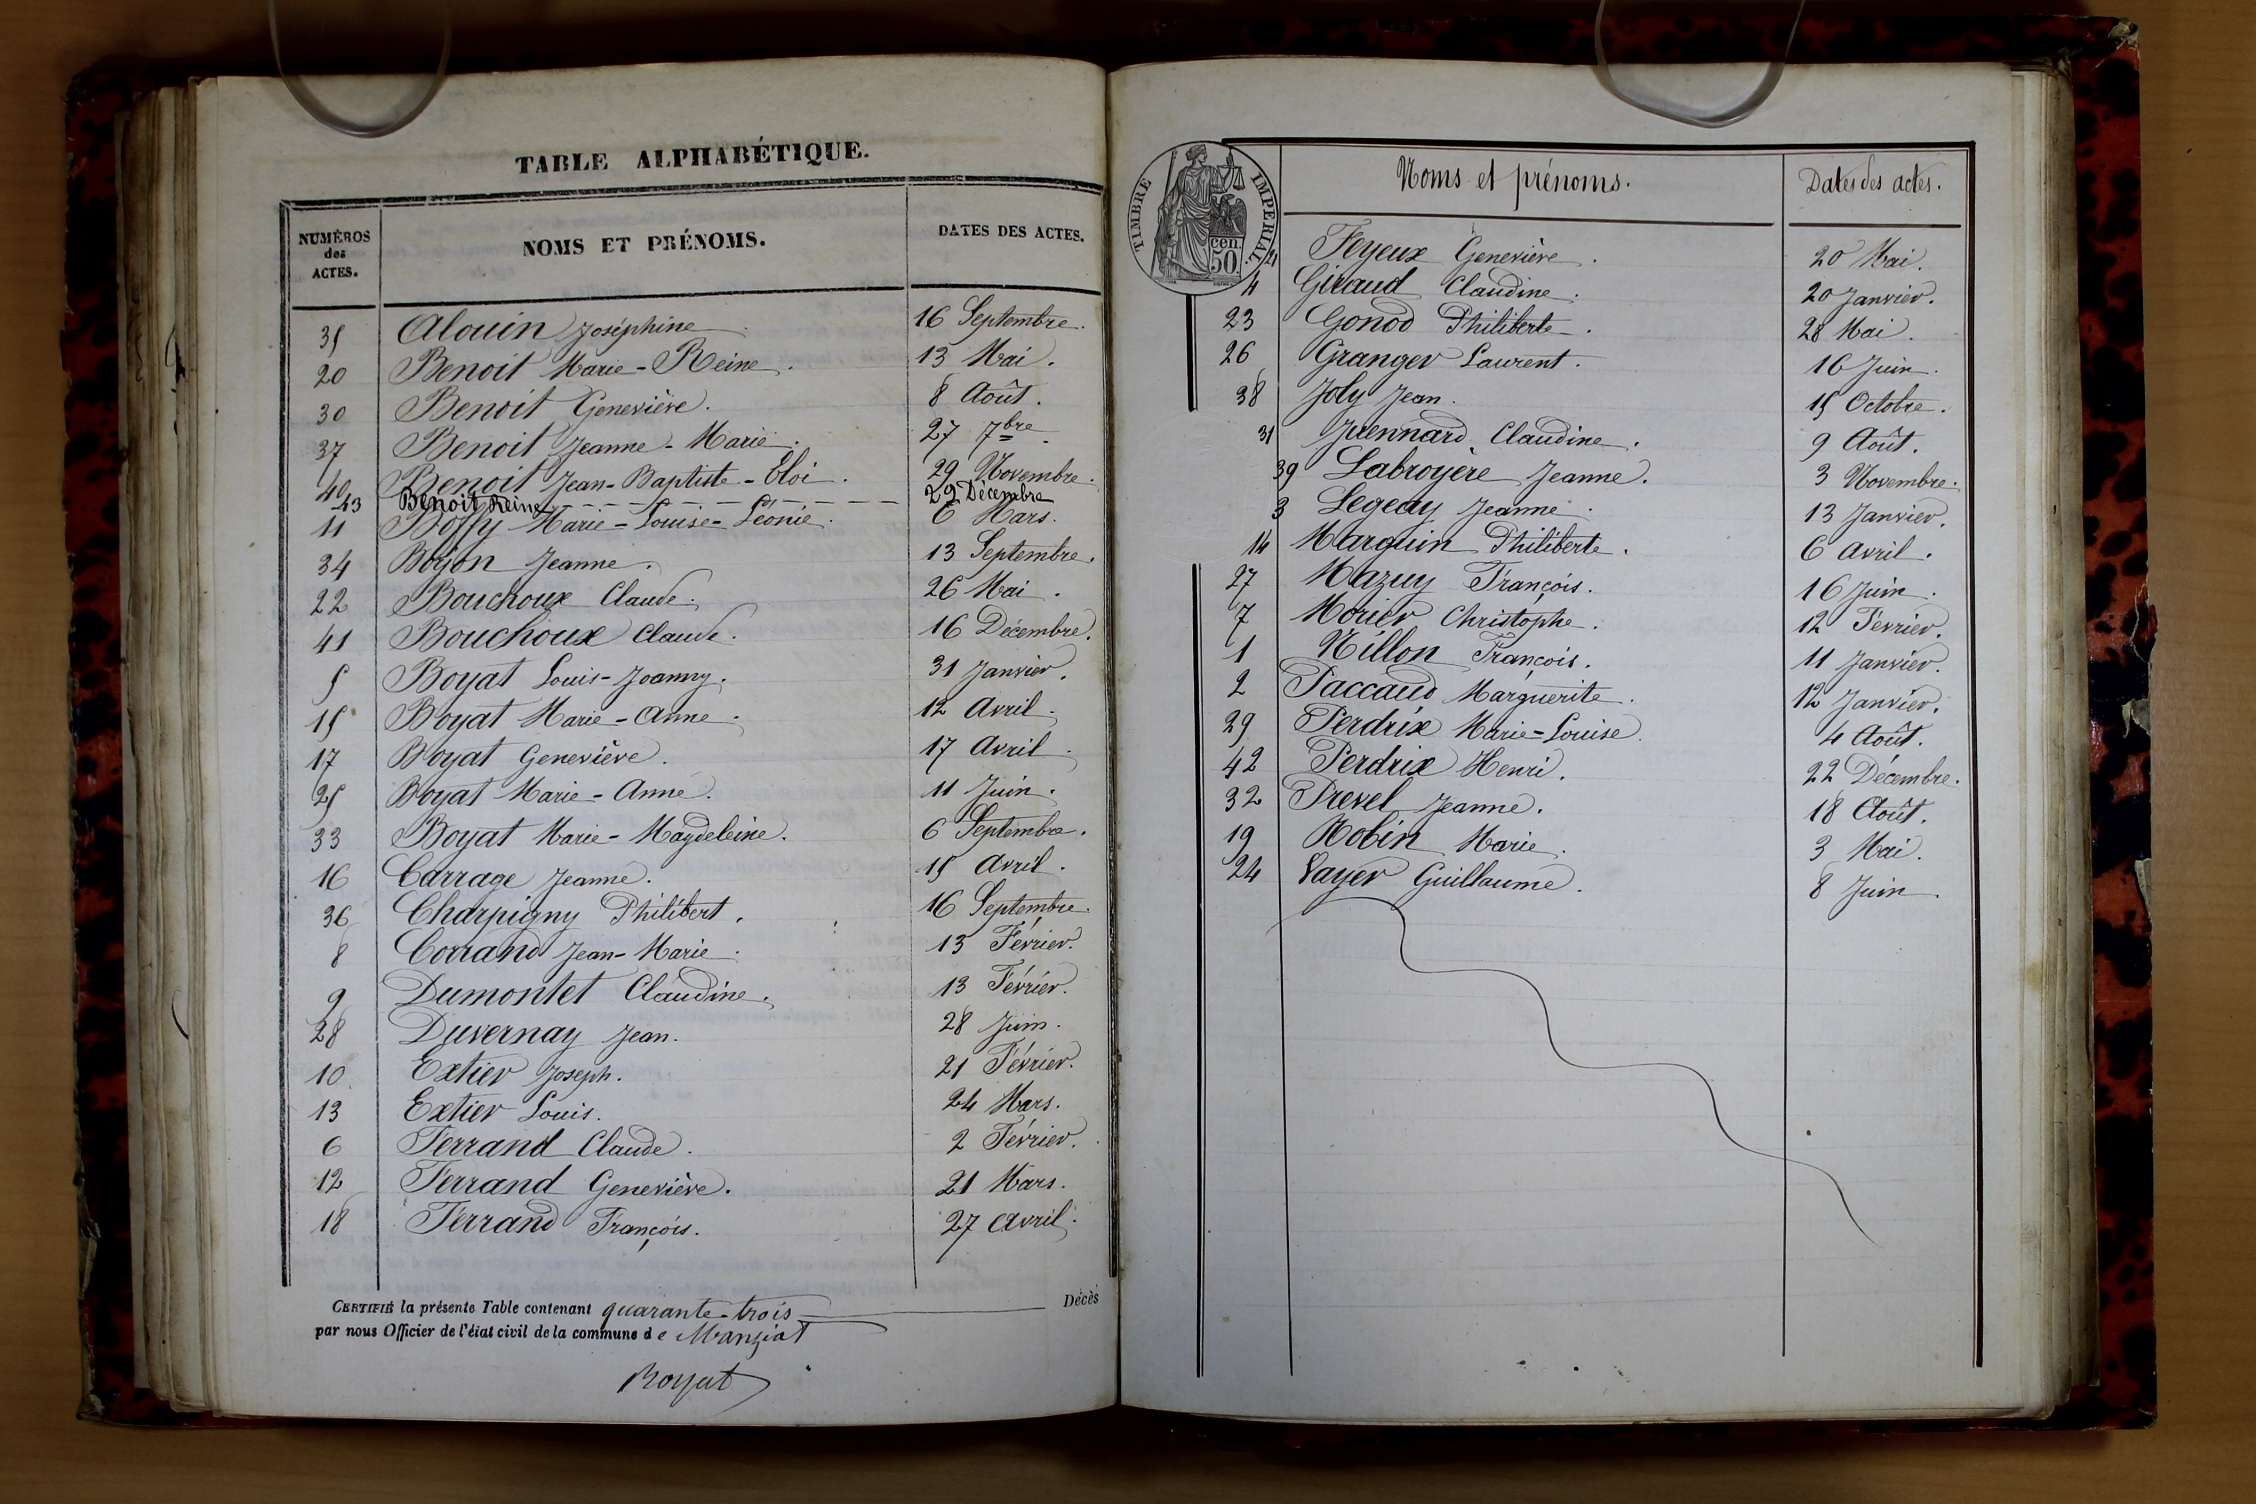 TABLE ALPHABÉTIQUE.
NUMÉROS des ACTES. NOMS ET PRÉNOMS. DATES DES ACTES.
35 Alouin Joséphine. 16 Septembre.
20 Benoit Marie-Reine. 13 Mai.
30 Benoit Geneviève. 8 Août.
37 Benoit Jeanne-Marie. 27 7bre.
40 Benoit Jean-Baptiste-Eloi. 29 Novembre.
43 Benoit Reine 29 Décembre
11 Boffy Marie-Louise-Léonie. 6 Mars.
34 Boyon Jeanne. 13 Septembre.
22 Bouchoux Claude. 26 Mai.
41 Bouchoux Claude. 16 Décembre.
5 Boyat Louis-Joanny. 31 Janvier.
15 Boyat Marie-Anne. 12 Avril.
17 Boyat Geneviève. 17 Avril.
25 Boyat Marie-Anne. 11 Juin.
33 Boyat Marie-Magdeleine. 6 Septembre.
16 Carrage Jeanne. 15 Avril.
36 Charpigny Philibert. 16 Septembre.
8 Corrand Jean-Marie. 13 Février.
9 Dumontet Claudine. 13 Février.
28 Duvernay Jean. 28 Juin.
10 Extier Joseph. 21 Février.
13 Extier Louis. 24 Mars.
6 Ferrand Claude. 2 Février.
12 Ferrand Geneviève. 21 Mars.
18 Ferrand François. 27 Avril.
CERTIFIÉ la présente Table contenant quarante-trois Décès
par nous Officier de l'état civil de la commune de Manziat
Boyat
TIMBRE IMPÉRIAL
50 cen.
Noms et prénoms. Dates des actes.
21 Feyeux Geneviève. 20 Mai.
4 Giraud Claudine. 20 Janvier.
23 Gonod Philiberte. 28 Mai.
26 Granger Laurent. 16 Juin.
38 Joly Jean. 15 Octobre.
31 Juennard Claudine. 9 Août.
39 Labroyère Jeanne. 3 Novembre.
3 Legeay Jeanne. 13 Janvier.
14 Marguin Philiberte. 6 Avril.
27 Mazuy François. 16 Juin.
7 Morier Christophe. 12 Février.
1 Nillon François. 11 Janvier.
2 Paccaud Marguerite. 12 Janvier.
29 Perdrix Marie-Louise. 4 Août.
42 Perdrix Henri. 22 Décembre.
32 Prevel Jeanne. 18 Août.
19 Robin Marie. 3 Mai.
24 Vayer Guillaume. 8 Juin.